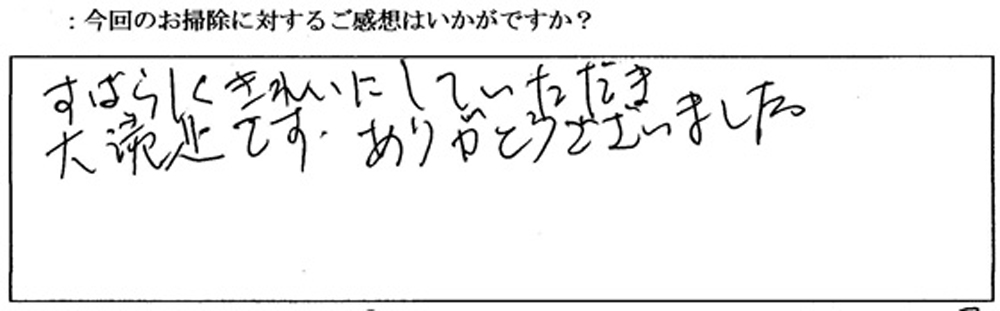 ：今回のお掃除に対するご感想はいかがですか？
すばらしくきれいにしていただき
大満足です。ありがとうございました。